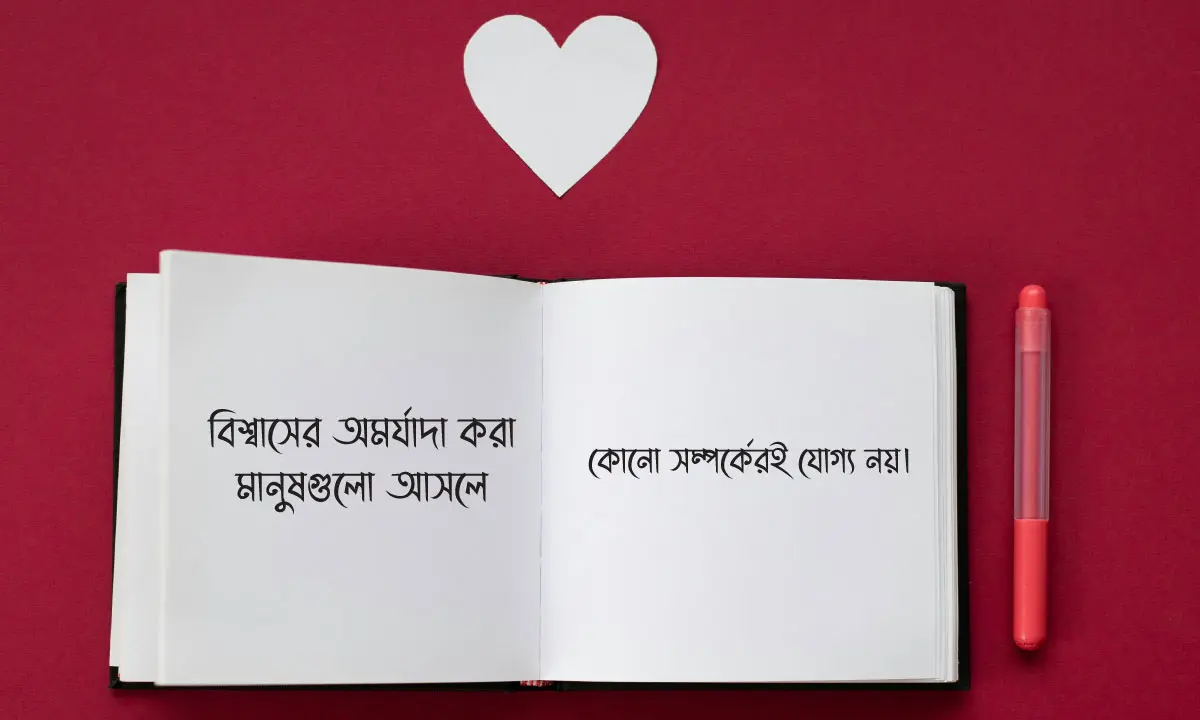 বিশ্বাসের অমর্যাদা করা
মানুষগুলো আসলে
কোনো সম্পর্কেরই যোগ্য নয়।